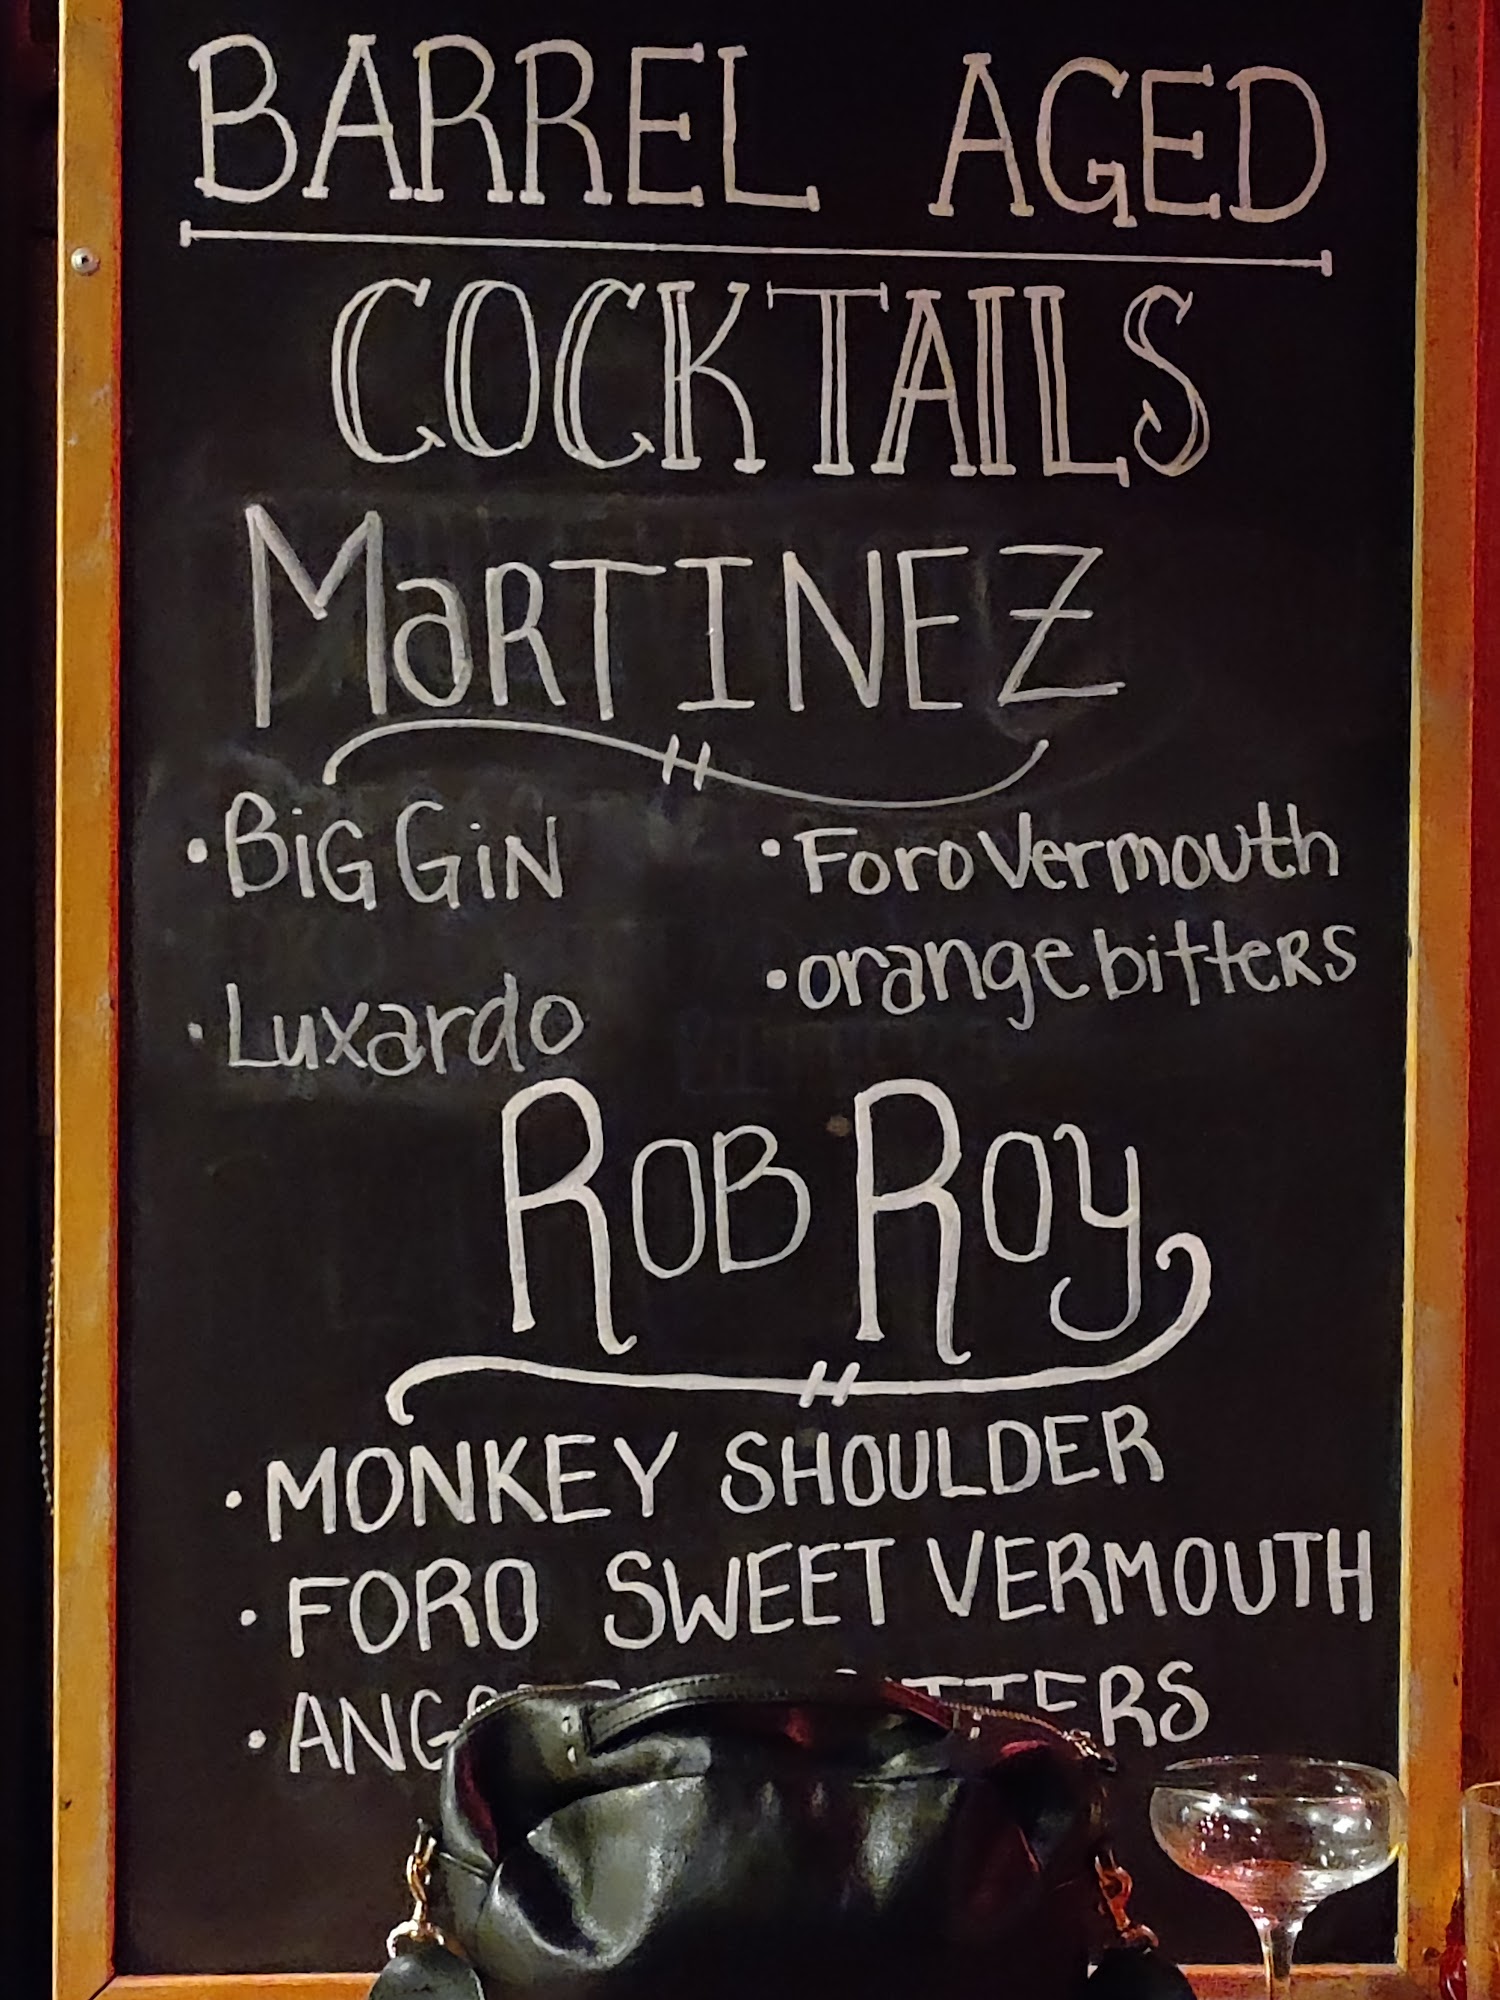 BARREL AGED
COCKTAILS
MaRTINEZ
• BiG GiN
• Luxardo
• Foro Vermouth
• orange bitteRS
ROB ROy
• MONKEY SHOULDER
• FORO SWEET VERMOUTH